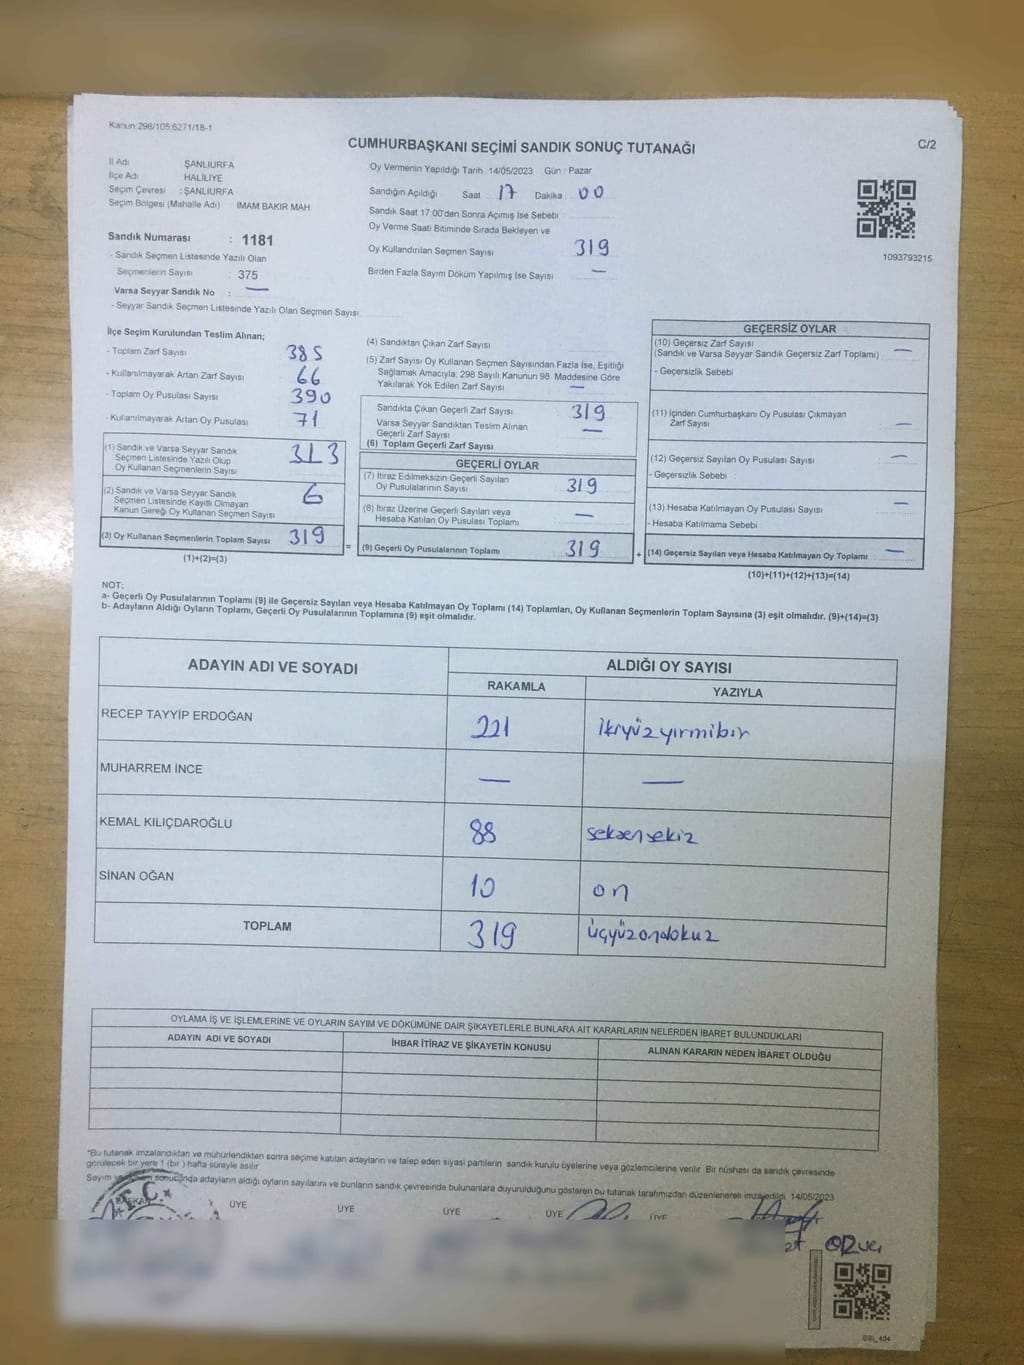 Kanun:298/105,6271/18-1
C/2
CUMHURBAŞKANI SEÇİMİ SANDIK SONUÇ TUTANAĞI
İl Adı ŞANLIURFA
İlçe Adı HALİLİYE
Seçim Çevresi : ŞANLIURFA
Seçim Bölgesi (Mahalle Adı) IMAM BAKIR MAH
Sandık Numarası : 1181
- Sandık Seçmen Listesinde Yazılı Olan
Seçmenlerin Sayısı : 375
Varsa Seyyar Sandık No : —
- Seyyar Sandık Seçmen Listesinde Yazılı Olan Seçmen Sayısı
Oy Vermenin Yapıldığı Tarih : 14/05/2023 Gün : Pazar
Sandığın Açıldığı Saat 17 Dakika 00
Sandık Saat 17:00'den Sonra Açımış İse Sebebi
Oy Verme Saati Bitiminde Sırada Bekleyen ve
Oy Kullandırılan Seçmen Sayısı 319
Birden Fazla Sayım Döküm Yapılmış İse Sayısı —
1093793215
İlçe Seçim Kurulundan Teslim Alınan;
- Toplam Zarf Sayısı 385
- Kullanılmayarak Artan Zarf Sayısı 66
- Toplam Oy Pusulası Sayısı 390
- Kullanılmayarak Artan Oy Pusulası 71
(1) Sandık ve Varsa Seyyar Sandık
Seçmen Listesinde Yazılı Olup
Oy Kullanan Seçmenlerin Sayısı 313
(2) Sandık ve Varsa Seyyar Sandık
Seçmen Listesinde Kayıtlı Olmayan
Kanun Gereği Oy Kullanan Seçmen Sayısı 6
(3) Oy Kullanan Seçmenlerin Toplam Sayısı 319
(1)+(2)=(3)
=
(4) Sandıktan Çıkan Zarf Sayısı
(5) Zarf Sayısı Oy Kullanan Seçmen Sayısından Fazla İse, Eşitliği
Sağlamak Amacıyla; 298 Sayılı Kanunun 98. Maddesine Göre
Yakılarak Yok Edilen Zarf Sayısı —
Sandıkta Çıkan Geçerli Zarf Sayısı 319
Varsa Seyyar Sandıktan Teslim Alınan
Geçerli Zarf Sayısı —
(6) Toplam Geçerli Zarf Sayısı
GEÇERLİ OYLAR
(7) İtiraz Edilmeksizin Geçerli Sayılan
Oy Pusulalarının Sayısı 319
(8) İtiraz Üzerine Geçerli Sayılan veya
Hesaba Katılan Oy Pusulası Toplamı —
(9) Geçerli Oy Pusulalarının Toplamı 319
+
GEÇERSİZ OYLAR
(10) Geçersiz Zarf Sayısı
(Sandık ve Varsa Seyyar Sandık Geçersiz Zarf Toplamı) —
- Geçersizlik Sebebi
(11) İçinden Cumhurbaşkanı Oy Pusulası Çıkmayan
Zarf Sayısı —
(12) Geçersiz Sayılan Oy Pusulası Sayısı —
- Geçersizlik Sebebi :
(13) Hesaba Katılmayan Oy Pusulası Sayısı —
- Hesaba Katılmama Sebebi
(14) Geçersiz Sayılan veya Hesaba Katılmayan Oy Toplamı —
(10)+(11)+(12)+(13)=(14)
NOT:
a- Geçerli Oy Pusulalarının Toplamı (9) ile Geçersiz Sayılan veya Hesaba Katılmayan Oy Toplamı (14) Toplamları, Oy Kullanan Seçmenlerin Toplam Sayısına (3) eşit olmalıdır. (9)+(14)=(3)
b- Adayların Aldığı Oyların Toplamı, Geçerli Oy Pusulalarının Toplamına (9) eşit olmalıdır.
ADAYIN ADI VE SOYADI ALDIĞI OY SAYISI
RAKAMLA YAZIYLA
RECEP TAYYİP ERDOĞAN 221 ikiyüzyirmibir
MUHARREM İNCE — —
KEMAL KILIÇDAROĞLU 88 seksensekiz
SİNAN OĞAN 10 on
TOPLAM 319 üçyüzondokuz
OYLAMA İŞ VE İŞLEMLERİNE VE OYLARIN SAYIM VE DÖKÜMÜNE DAİR ŞİKAYETLERLE BUNLARA AİT KARARLARIN NELERDEN İBARET BULUNDUKLARI
ADAYIN ADI VE SOYADI İHBAR İTİRAZ VE ŞİKAYETİN KONUSU ALINAN KARARIN NEDEN İBARET OLDUĞU
*Bu tutanak imzalandıktan ve mühürlendikten sonra seçime katılan adayların ve talep eden siyasi partilerin sandık kurulu üyelerine veya gözlemcilerine verilir. Bir nüshası da sandık çevresinde
görülecek bir yere 1 (bir) hafta süreyle asılır.
Sayım sonucunda adayların aldığı oyların sayılarını ve bunların sandık çevresinde bulunanlara duyurulduğunu gösteren bu tutanak tarafımızdan düzenlenerek imza edildi. 14/05/2023
BAŞKAN ÜYE ÜYE ÜYE ÜYE ÜYE
T.C.